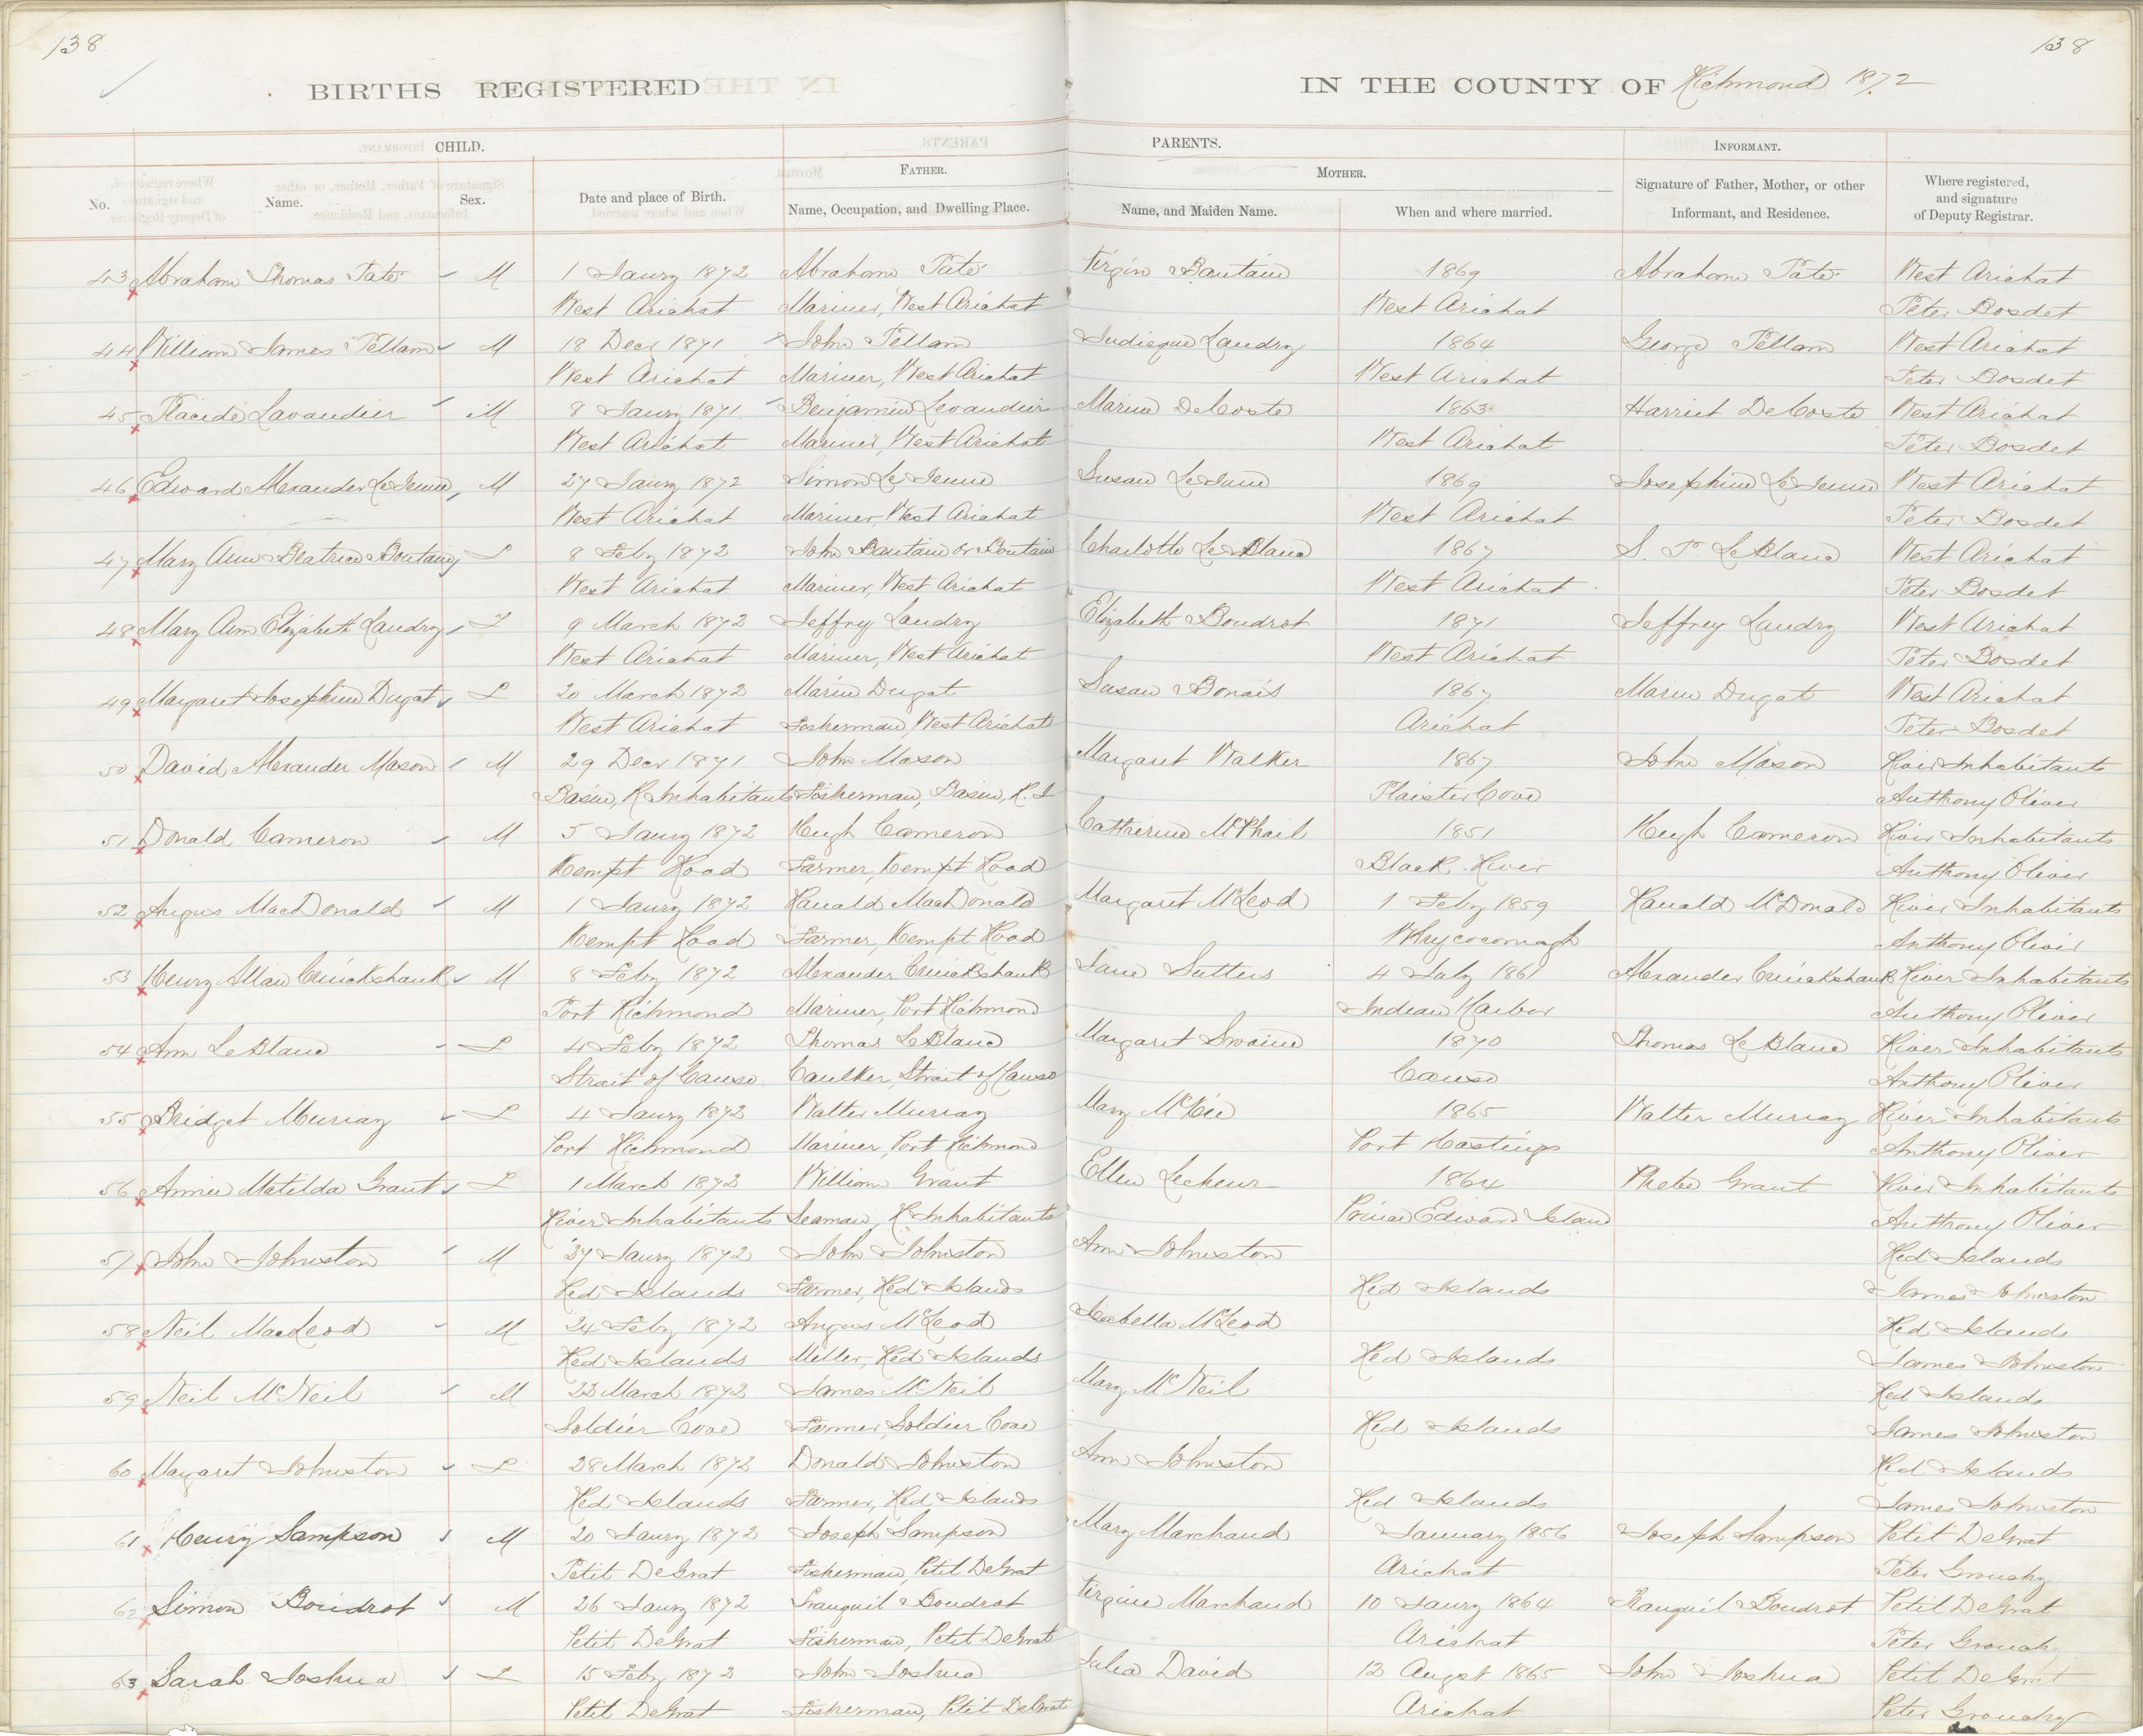 138
138
BIRTHS REGISTERED
IN THE COUNTY OF Richmond 1872
CHILD.
PARENTS.
INFORMANT.
FATHER.
MOTHER.
No.
Name.
Sex.
Date and place of Birth.
Name, Occupation, and Dwelling Place.
Name, and Maiden Name.
When and where married.
Signature of Father, Mother, or other
Informant, and Residence.
Where registered,
and signature
of Deputy Registrar.
43 Abraham Thomas Tate M 1 Jaury 1872 Abraham Tate Virgin Bautain 1869 Abraham Tate West Arichat
West Arichat Mariner, West Arichat West Arichat Peter Bosdet
44 William James Fellam M 18 Decr 1871 John Fellam Judique Landry 1864 George Fellam West Arichat
West Arichat Mariner, West Arichat West Arichat Peter Bosdet
45 Placide Lavandier M 8 Jaury 1871 Benjamin Levandier Marine DeCoste 1863 Harriet DeCoste West Arichat
West Arichat Mariner, West Arichat West Arichat Peter Bosdet
46 Edward Alexander LeJeune, M 27 Jaury 1872 Simon LeJeune Susan LeJeune 1869 Josephine LeJeune West Arichat
West Arichat Mariner, West Arichat West Arichat Peter Bosdet
47 Mary Ann Beatrice Boutain F 8 Feby 1872 John Bautain or Boutain Charlotte LeBlanc 1867 S. P. LeBlanc West Arichat
West Arichat Mariner, West Arichat West Arichat Peter Bosdet
48 Mary Ann Elizabeth Landry F 9 March 1872 Jeffry Landry Elizabeth Boudrot 1871 Jeffrey Landry West Arichat
West Arichat Mariner, West Arichat West Arichat Peter Bosdet
49 Margaret Josephine Dugat F 20 March 1872 Marin Dugat Susan Bonais 1867 Marin Dugat West Arichat
West Arichat Fisherman, West Arichat Arichat Peter Bosdet
50 David Alexander Mason M 29 Decr 1871 John Mason Margaret Walker 1867 John Mason River Inhabitants
Basin, R Inhabitants Fisherman, Basin, R. I Plaister Cove Anthony Oliver
51 Donald Cameron M 5 Jaury 1872 Hugh Cameron Catherine McPhail 1851 Hugh Cameron River Inhabitants
Kempt Road Farmer, Kempt Road Black River Anthony Oliver
52 Angus MacDonald M 1 Jaury 1872 Ranald MacDonald Margaret McLeod 1 Feby 1859 Ranald McDonald River Inhabitants
Kempt Road Farmer, Kempt Road Whycocomagh Anthony Oliver
53 Henry Allan Cruickshank M 8 Feby 1872 Alexander Cruickshank Jane Suttus 4 July 1861 Alexander Cruickshank River Inhabitants
Port Richmond Mariner, Port Richmond Indian Harbor Anthony Oliver
54 Ann LeBlanc F 4 Feby 1872 Thomas LeBlanc Margaret Swaine 1870 Thomas LeBlanc River Inhabitants
Strait of Canso Caulker, Strait of Canso Canso Anthony Oliver
55 Bridget Murray F 4 Jaury 1872 Walter Murray Mary 1865 Walter Murray River Inhabitants
Port Richmond Mariner, Port Richmond Port Hastings Anthony Oliver
56 Annie Matilda Grant F 1 March 1872 William Grant Ellen Lecheur 1864 Phebe Grant River Inhabitants
River Inhabitants Seaman, R. Inhabitants Prince Edward Island Anthony Oliver
57 John Johnston M 27 Jaury 1872 John Johnston Ann Johnston Red Islands
Red Islands Farmer, Red Islands Red Islands James Johnston
58 Neil MacLeod M 24 Feby 1872 Angus McLeod Isabella McLeod Red Islands
Red Islands Miller, Red Islands Red Islands James Johnston
59 Neil McNeil M 22 March 1872 James McNeil Mary McNeil Red Islands
Soldier Cove Farmer, Soldier Cove Red Islands James Johnston
60 Margaret Johnston F 28 March 1872 Donald Johnston Ann Johnston Red Islands
Red Islands Farmer, Red Islands Red Islands James Johnston
61 Henry Sampson M 20 Jaury 1872 Joseph Sampson Mary Marchand January 1856 Joseph Sampson Petit DeGrat
Petit DeGrat Fisherman, Petit DeGrat Arichat Peter Grouchy
62 Simon Boudrot M 26 Jaury 1872 Tranquil Boudrot Virginie Marchand 10 Jaury 1864 Tranquil Boudrot Petit DeGrat
Petit DeGrat Fisherman, Petit DeGrat Arichat Peter Grouchy
63 Sarah Joshua F 15 Feby 1872 John Joshua Julia David 12 Augst 1865 John Joshua Petit DeGrat
Petit DeGrat Fisherman, Petit DeGrat Arichat Peter Grouchy